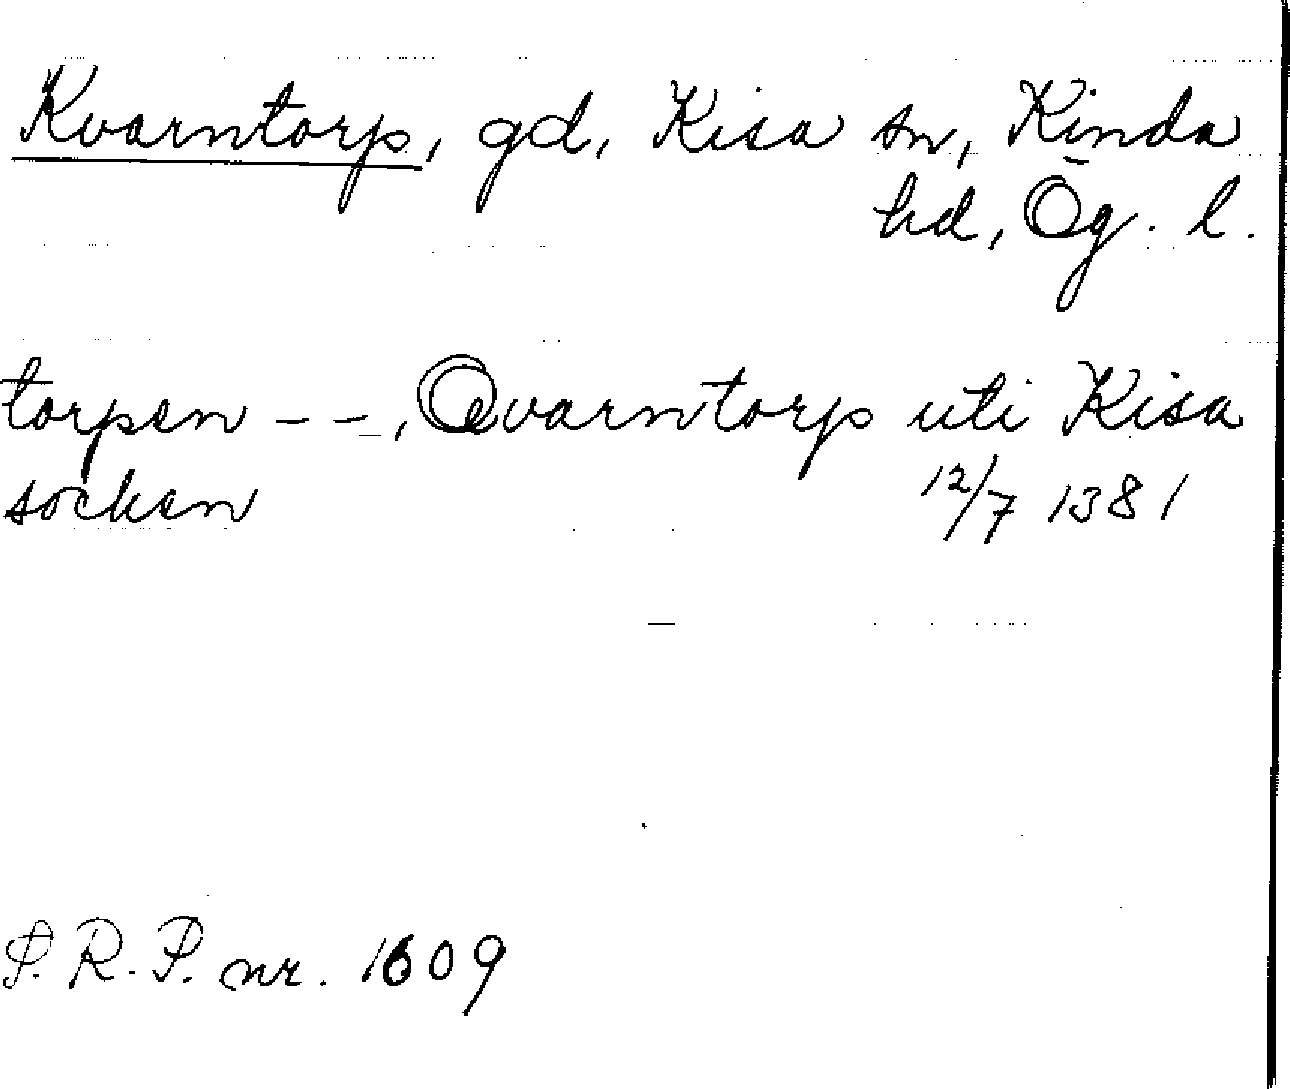 Kvarntorp, gd, Kisa sn, Kinda
hd, Ög. l.
torpen - -, Qvarntorp uti Kisa
socken 12/7 1381
S. R. P. nr. 1609